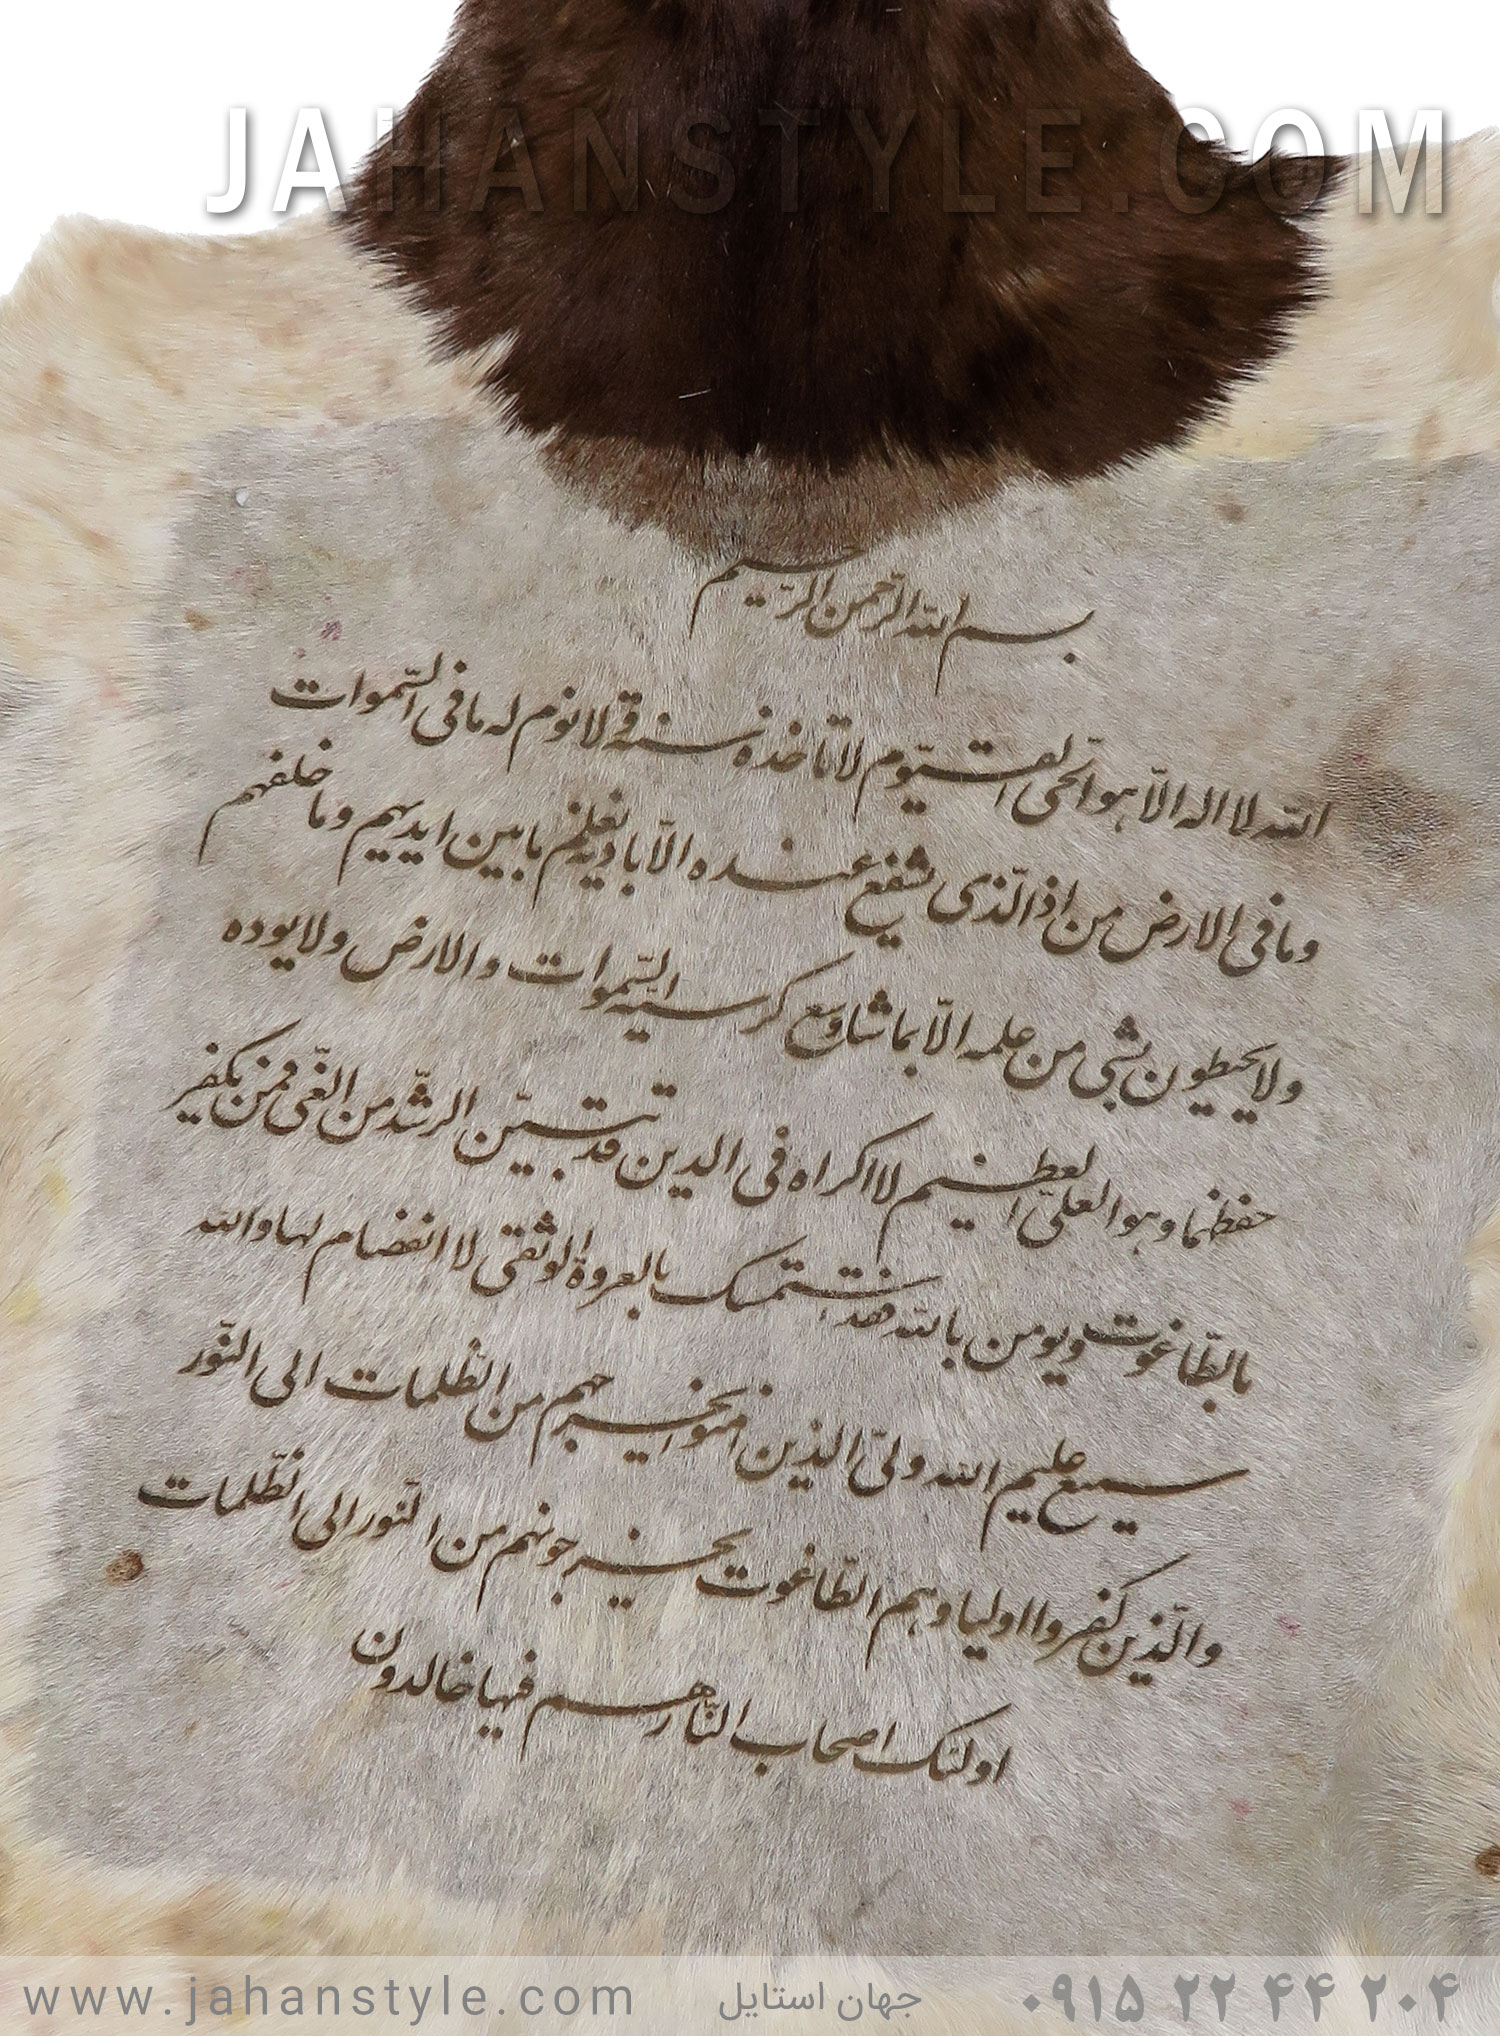 JAHANSTYLE.COM
بسم الله الرّحمن الرّحیم
الله لا اله الّا هو الحّی القیّوم لا تاخذه سنة و لا نوم له ما فی السّموات
و ما فی الارض من اذ الّذی یشفع عنده الّا باذنه یعلم ما بین ایدیهم و ما خلفهم
و لا یحیطون بشی من علمه الّا بما شاء وسع کرسیّه السّموات و الارض و لا یوده
حفظهما و هو العلیّ العظیم لا اکراه فی الدین قد تبیّن الرشّد من الغّی فمن یکفر
بالطّاغوت و یومن بالله فقد ستمسک بالعروة الوثقی لا انفضام لها و الله
سمیع علیم الله ولیّ الذین امنو یخرجهم من الظّلمات الی النّور
و الّذین کفروا اولیاوهم الطّاغوت یخرجونهم من النّور الی الظّلمات
اولئک اصحاب النّار هم فیها خالدون
www.jahanstyle.com جهان استایل ۰۹۱۵ ۲۲ ۴۴ ۲۰۴